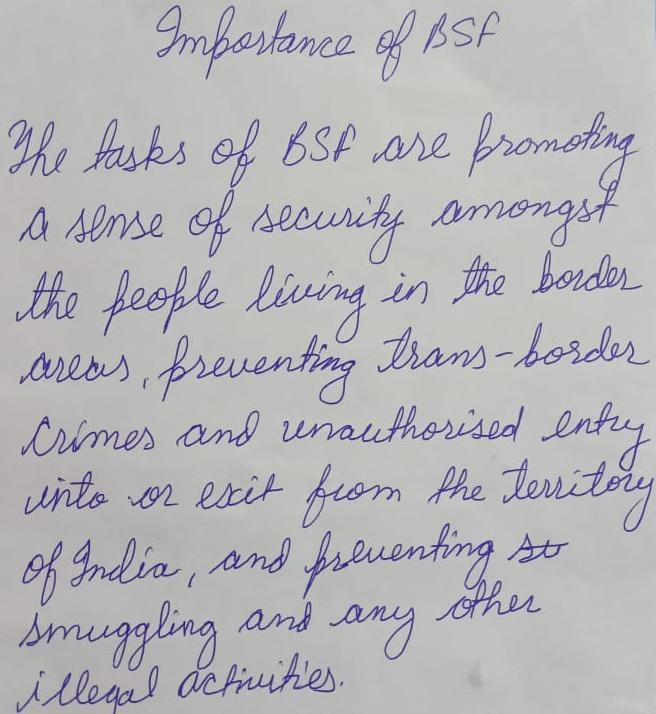 Importance of BSF
The tasks of BSF are promoting
a sense of security amongst
the people living in the border
areas, preventing trans-border
crimes and unauthorised entry
into or exit from the territory
of India, and preventing
smuggling and any other
illegal activities.